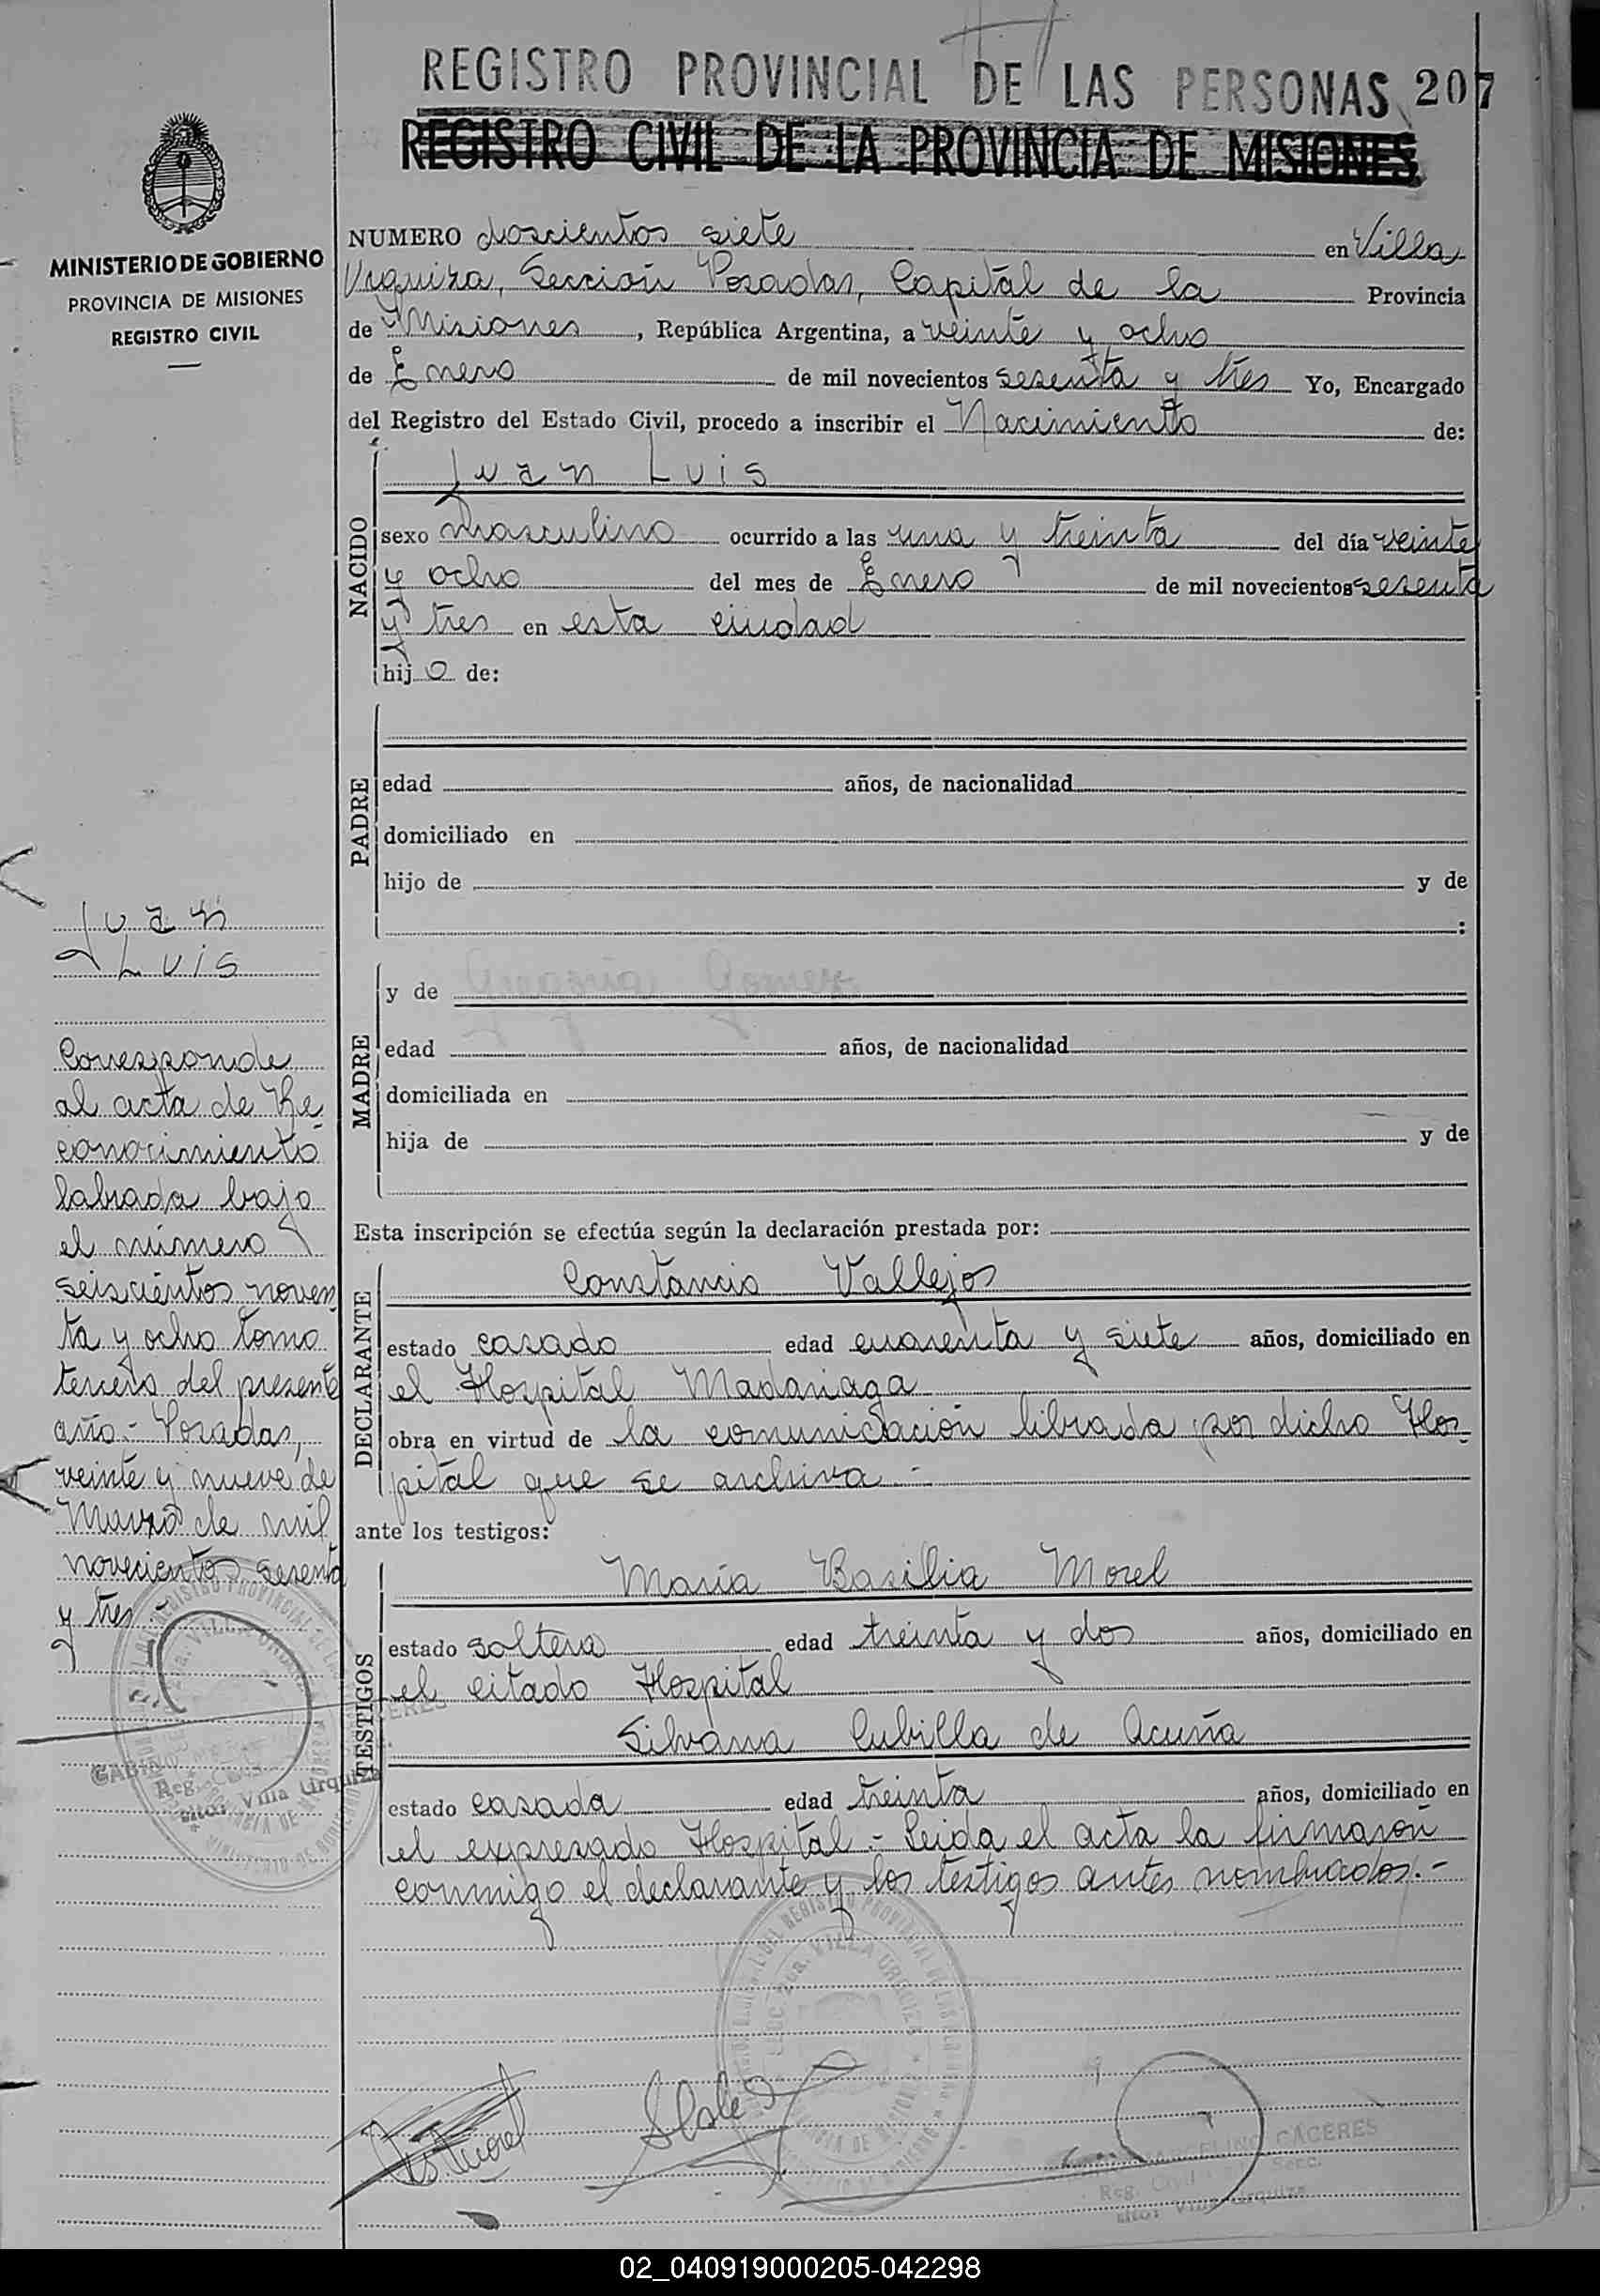 REGISTRO PROVINCIAL DE LAS PERSONAS 207
REGISTRO CIVIL DE LA PROVINCIA DE MISIONES
MINISTERIO DE GOBIERNO
PROVINCIA DE MISIONES
REGISTRO CIVIL
NUMERO doscientos siete en Villa
Urquiza, Sección Posadas, Capital de la Provincia
de Misiones, República Argentina, a veinte y ocho
de Enero de mil novecientos sesenta y tres Yo, Encargado
del Registro del Estado Civil, procedo a inscribir el Nacimiento de:
NACIDO
Juan Luis
sexo masculino ocurrido a las una y treinta del día veinte
y ocho del mes de Enero de mil novecientos sesenta
y tres en esta ciudad
hijo de:
PADRE
edad años, de nacionalidad
domiciliado en
hijo de y de
:
MADRE
y de Gregoria Gomez
edad años, de nacionalidad
domiciliada en
hija de y de
Esta inscripción se efectúa según la declaración prestada por:
DECLARANTE
Constancio Vallejos
estado casado edad cuarenta y siete años, domiciliado en
el Hospital Madariaga
obra en virtud de la comunicación librada por dicho Hos-
pital que se archiva.-
ante los testigos:
TESTIGOS
María Basilia Morel
estado soltera edad treinta y dos años, domiciliado en
el citado Hospital
Silvana Cubilla de Acuña
estado casada edad treinta años, domiciliado en
el expresado Hospital.- Leida el acta la firmaron
conmigo el declarante y los testigos antes nombrados.-
Juan
Luis
Corresponde
al acta de Re
conocimiento
labrada bajo
el número
seiscientos noven
ta y ocho tomo
tercero del presente
año.- Posadas,
veinte y nueve de
Marzo de mil
novecientos sesenta
y tres.-
Villa Urquiza
MARCELINO CACERES
Reg. Civil Secc.
Villa Urquiza
02_040919000205-042298